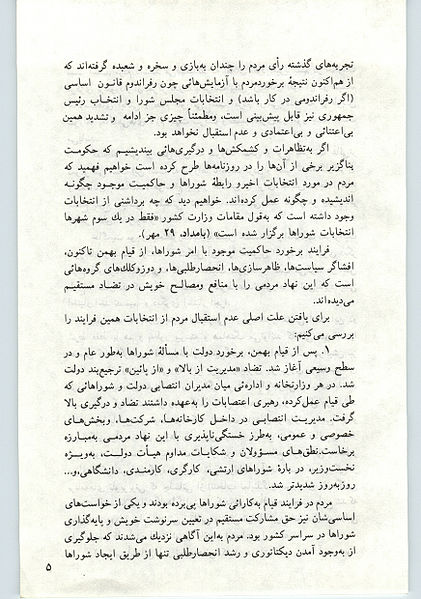 تجربه‌های گذشته رأی مردم را چندان به‌بازی و سخره و شعبده گرفته‌اند که
از هم‌اکنون نتیجهٔ برخوردمردم با آزمایش‌هائی چون رفراندوم قانون اساسی
(اگر رفراندومی در کار باشد) و انتخابات مجلس شورا و انتخاب رئیس
جمهوری نیز قابل پیش‌بینی است، ومطمئناً چیزی جز ادامه و تشدید همین
بی‌اعتنائی و بی‌اعتمادی و عدم استقبال نخواهد بود.
اگر به‌تظاهرات و کشمکش‌ها و درگیری‌هائی بیندیشیم که حکومت
بناگزیر برخی از آن‌ها را در روزنامه‌ها طرح کرده است خواهیم فهمید که
مردم در مورد انتخابات اخیرو رابطهٔ شوراها و حاکمیت موجود چگونه
اندیشیده و چگونه عمل کرده‌اند. خواهیم دید که چه برداشتی از انتخابات
وجود داشته است که به‌قول مقامات وزارت کشور «فقط در یك سوم شهرها
انتخابات شوراها برگزار شده است» (بامداد، ۲۹ مهر).
فرایند برخورد حاکمیت موجود با امر شوراها، از قیام بهمن تاکنون،
افشاگر سیاست‌ها، ظاهرسازی‌ها، انحصارطلبی‌ها، و دوزوکلك‌های گروه‌هائی
است که این نهاد مردمی را با منافع ومصالح خویش در تضاد مستقیم
می‌دیده‌اند.
برای یافتن علت اصلی عدم استقبال مردم از انتخابات همین فرایند را
بررسی می‌کنیم:
۱. پس از قیام بهمن، برخورد دولت با مسألهٔ شوراها به‌طور عام و در
سطح وسیعی آغاز شد. تضاد «مدیریت از بالا» و «از پائین» ترجیع‌بند دولت
شد. در هر وزارتخانه و اداره‌ئی میان مدیران انتصابی دولت و شوراهائی که
طی قیام عمل‌کرده، رهبری اعتصابات را به‌عهده داشتند تضاد و درگیری بالا
گرفت. مدیریت انتصابی در داخل کارخانه‌ها، شرکت‌ها، وبخش‌های
خصوصی و عمومی، به‌طرز خستگی‌ناپذیری با این نهاد مردمی به‌مبارزه
برخاست.نطق‌های مسؤولان و شکایات مداوم هیأت دولت، به‌ویژه
نخست‌وزیر، در بارهٔ شوراهای ارتشی، کارگری، کارمندی، دانشگاهی،و...
روزبه‌روز شدیدتر شد.
مردم در فرایند قیام به‌کارائی شوراها پی‌برده بودند و یکی از خواست‌های
اساسی‌شان نیز حق مشارکت مستقیم در تعیین سرنوشت خویش و پایه‌گذاری
شوراها در سراسر کشور بود. مردم به‌این آگاهی نزدیك می‌شدند که جلوگیری
از به‌وجود آمدن دیکتاتوری و رشد انحصارطلبی تنها از طریق ایجاد شوراها
۵